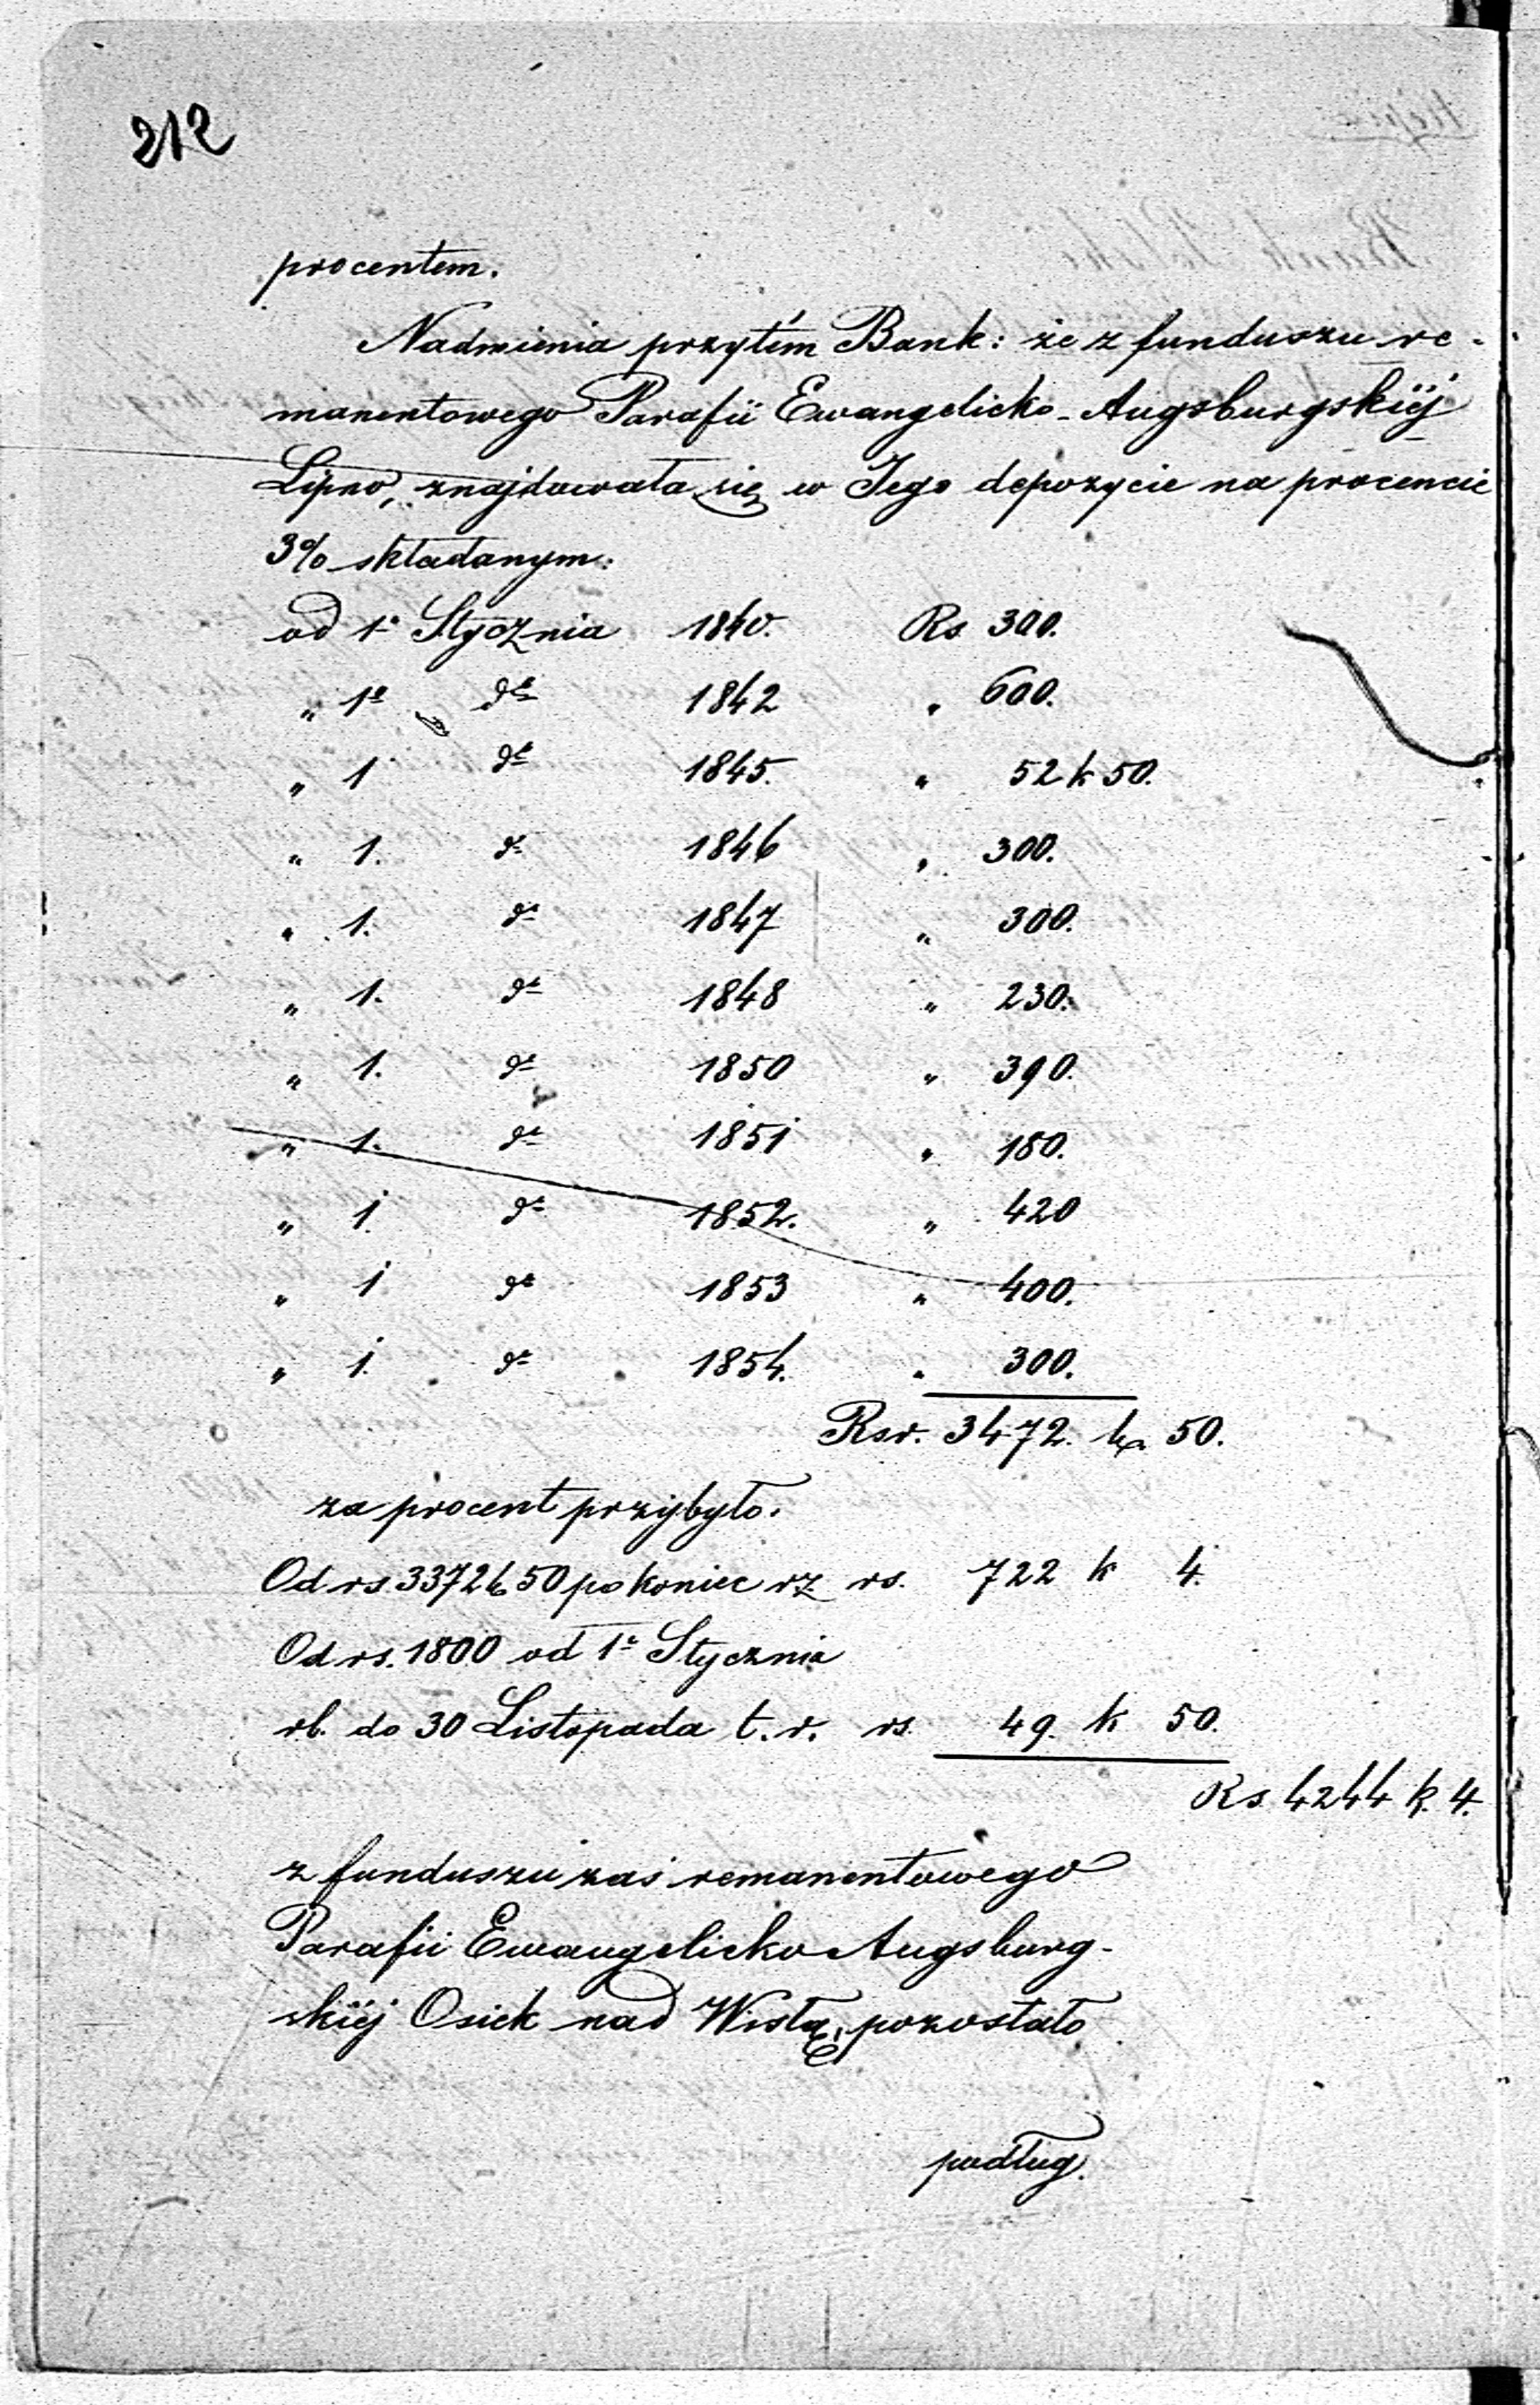 212
procentem.
Nadmienia przytém Bank: że z funduszu re-
manentowego Parafii Ewangelicko-Augsburgskiéj
Lipno, znajdowała się w Jego depozycie na procencie
3% składanym:
od 1º Stycznia 1840. Rs 300.
„ 1º dº 1842 „ 600.
„ 1 dº 1845. „ 52 k 50.
„ 1. dº 1846 „ 300.
„ 1. dº 1847 „ 300.
„ 1. dº 1848 „ 230.
„ 1. dº 1850 „ 390.
„ 1. dº 1851 „ 180.
„ 1 dº 1852. „ 420
„ 1 dº 1853 „ 400.
„ 1. dº 1854. „ 300.
Rsr. 3472. k. 50.
za procent przybyło.
Od rs. 3372 k 50 po koniec rz rs. 722 k 4.
Od rs. 1800 od 1º Stycznia
rb. do 30 Listopada t. r. rs. 49. k 50.
Rs. 4244 k. 4.
z funduszu zaś remanentowego
Parafii Ewangelicko Augsburg-
skiéj Osiek nad Wisłą, pozostało
podług.